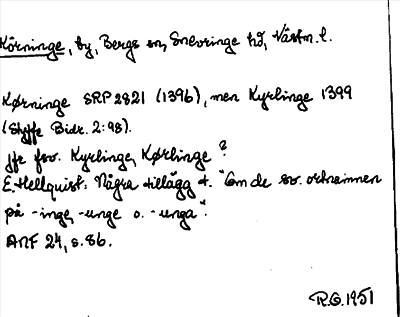 Körninge, by, Bergs sn, Snevringe hd, Västm. l.
Kørninge SRP 2821 (1396), men Kyrlinge 1399
(Styffe Bidr. 2:98).
jfr fsv. Kyrlinge, Kørlinge?
E. Hellquist: Några tillägg t. "Om de sv. ortnamnen
på -inge, -unge o. -unga".
ANF 24, s. 86.
R.G. 1951